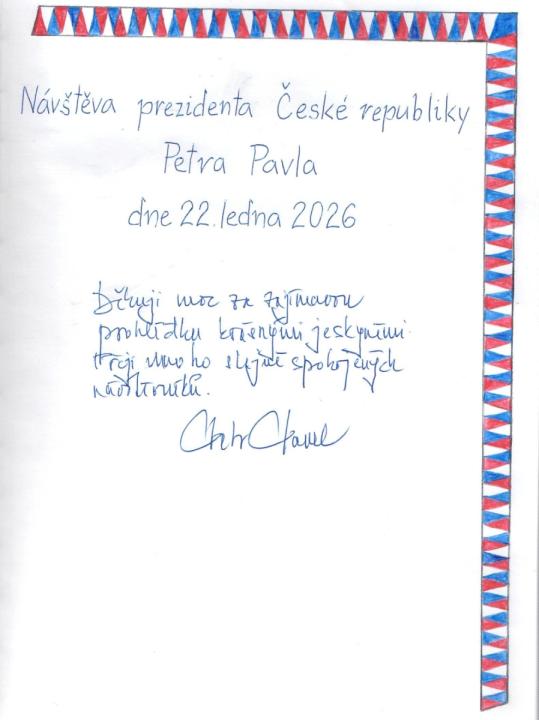 Návštěva prezidenta České republiky
Petra Pavla
dne 22. ledna 2026
Děkuji moc za zajímavou
prohlídku jeskyněmi.
Přeji mnoho stejně spokojených
návštěvníků.
Petr Pavel